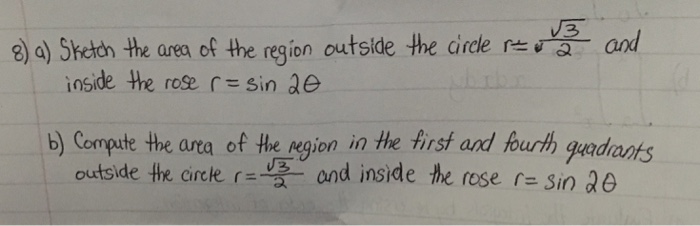 8) a) Sketch the area of the region outside the circle r = √3/2 and
inside the rose r = sin 2θ
b) Compute the area of the region in the first and fourth quadrants
outside the circle r = √3/2 and inside the rose r = sin 2θ